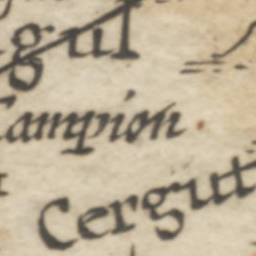 gul
Campion
Cergut